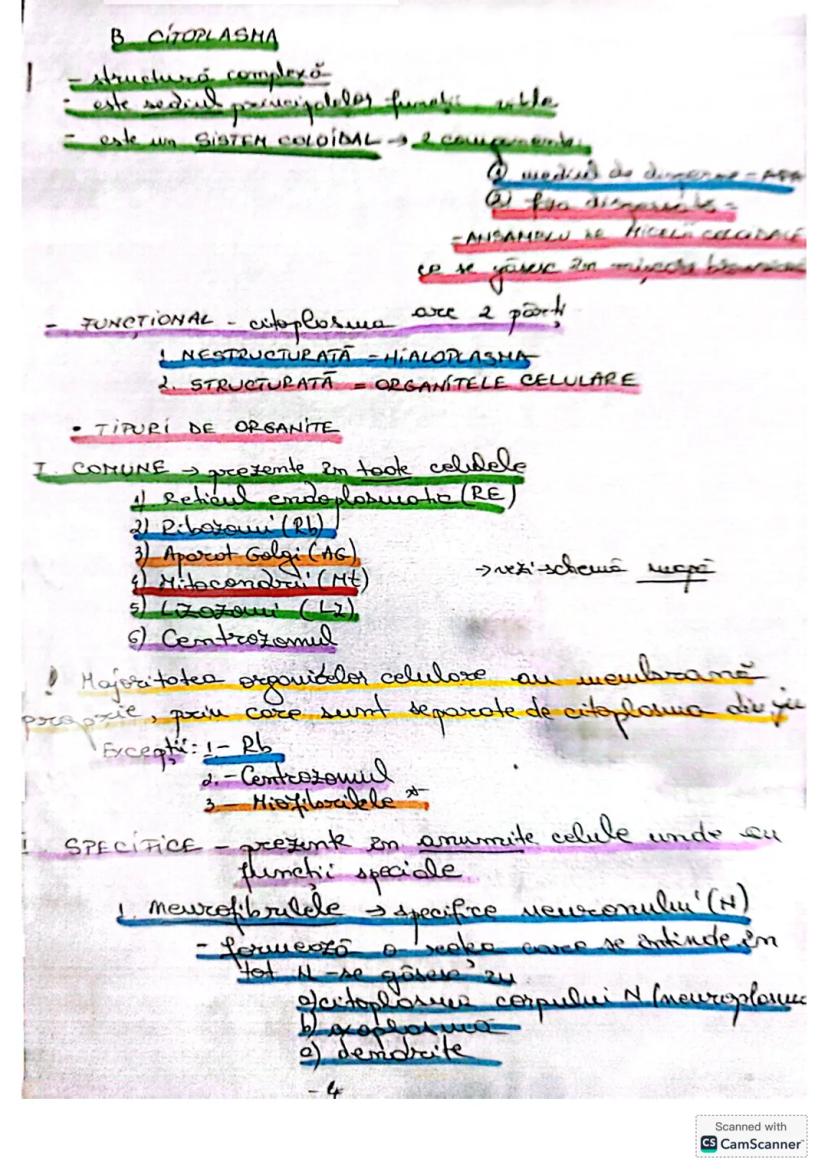 B CITOPLASMA
- structură complexă
- este sediul principalelor funcții vitale
- este un SISTEM COLOIDAL → 2 componente
① mediul de dispersie - APA
② faza dispersată -
- ANSAMBLU DE MICELII COLOIDALE
ce se găsesc în mișcare browniană
- FUNCȚIONAL - citoplasma are 2 părți
1. NESTRUCTURATĂ = HIALOPLASMA
2. STRUCTURATĂ = ORGANITELE CELULARE
• TIPURI DE ORGANITE
I. COMUNE → prezente în toate celulele
1) Reticul endoplasmatic (RE)
2) Ribozomi (Rb)
3) Aparat Golgi (AG)
4) Mitocondrii (Mt)
→ vezi schemă mapă
5) Lizozomi (Lz)
6) Centrozomul
! Majoritatea organitelor celulare au membrană
proprie, prin care sunt separate de citoplasma din jur
Excepții: 1 - Rb
2. - Centrozomul
3 - Miofibrilele *
I. SPECIFICE - prezente în anumite celule unde au
funcții speciale
1. neurofibrilele → specifice neuronului (N)
- formează o rețea care se întinde în
tot N - se găsesc în
a) citoplasma corpului N (neuroplasma
b) axoplasmă
c) dendrite
- 4
Scanned with
CS CamScanner